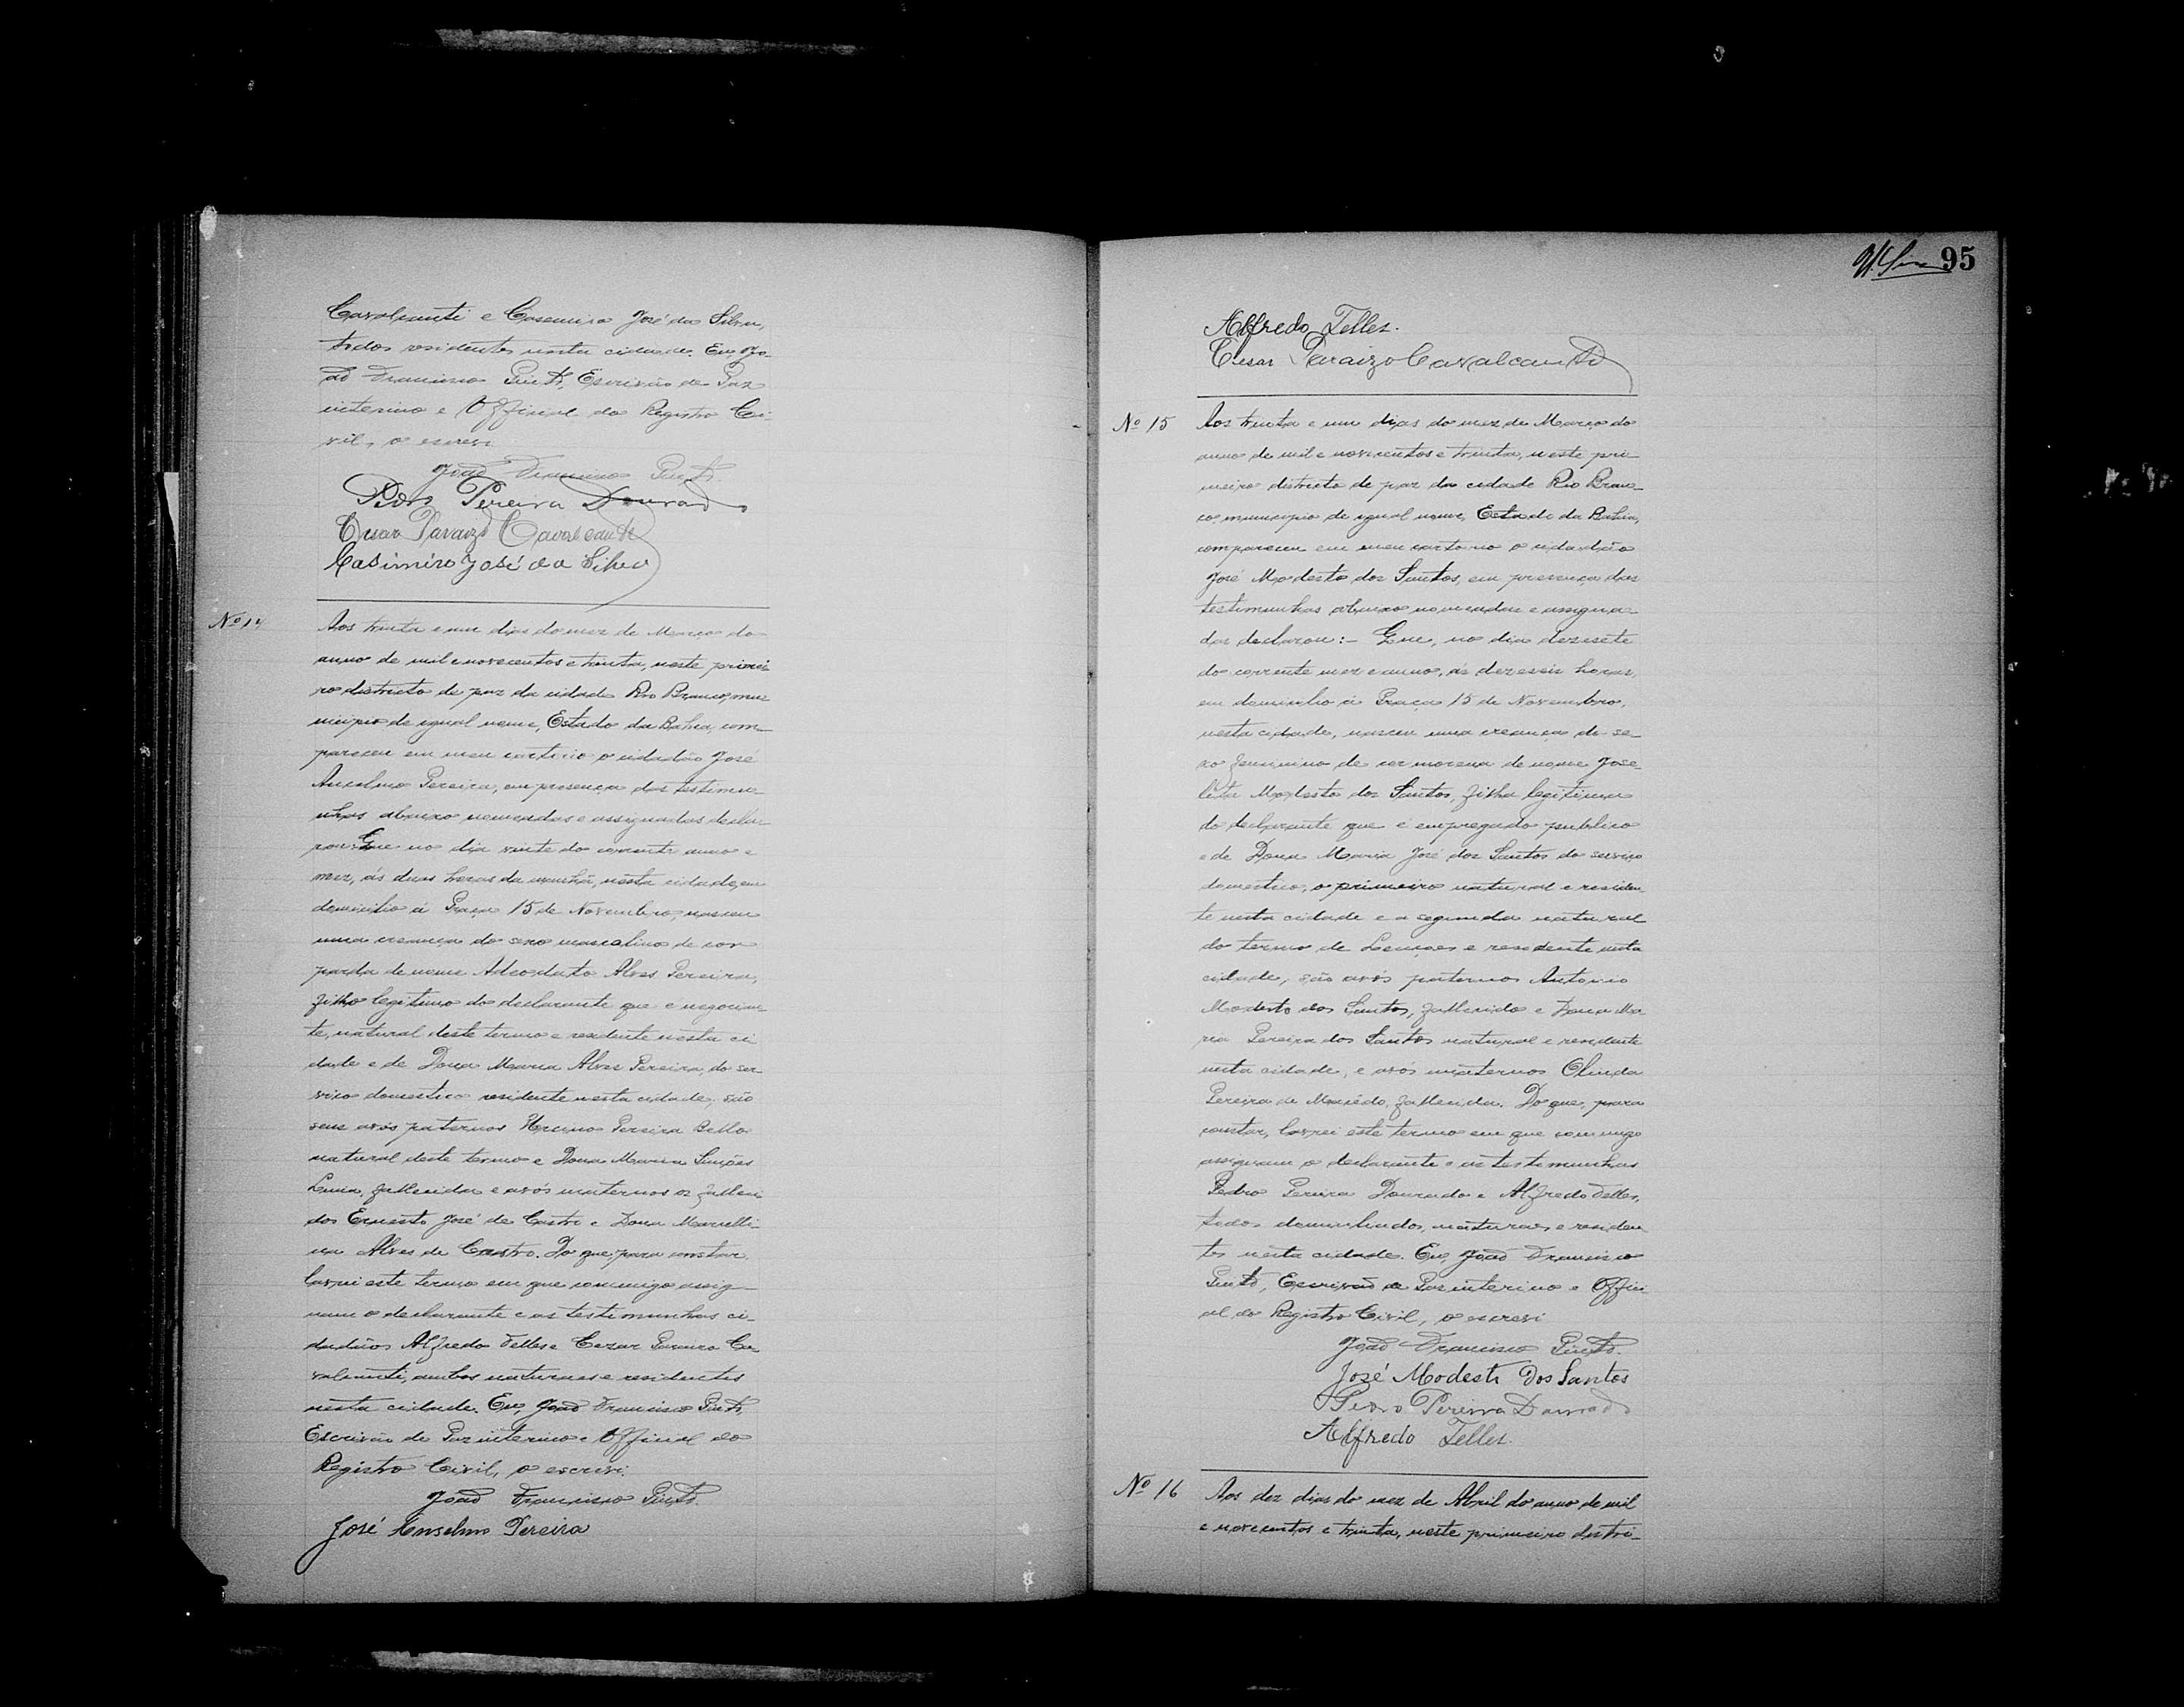 Cavalcanti e Casemiro José da Silva,
todos residentes nesta cidade. Eu, Jo-
ão Francisco Pinto, Escrivão de Paz
interino e Official do Registro Ci-
vil, o escrevi.
João Francisco Pinto.
Pedro Pereira Dourado
Cesar Paraizo Cavalcanti
Casimiro José da Silva
Nº 14
Aos trinta e um dias do mez de Março do
anno de mil e novecentos e trinta, neste primei-
ro districto de paz da cidade Rio Branco, mu-
nicipio de igual nome, Estado da Bahia, com-
pareceu em meu cartorio o cidadão José
Anselmo Pereira, em presença das testimu-
nhas abaixo nomeadas e assignadas decla-
rou: Que no dia vinte do corrente anno e
mez, ás duas horas da manhã, nesta cidade, em
domicilio á Praça 15 de Novembro, nasceu
uma creança do sexo masculino de cor
parda de nome Adeodato Alves Pereira,
filho legitimo do declarante que é negocian-
te, natural deste termo e residente nesta ci
dade e de Dona Maria Alves Pereira, do ser-
viço domestico residente nesta cidade, são
seus avós paternos Pereira Bello
natural deste termo e Dona Maria Simões
fallecida e avós maternos os falleci
dos Ernesto José de Castro e Dona Marcelli-
na Alves de Castro. Do que, para constar,
lavrei este termo em que commigo assig-
nam o declarante e as testimunhas ci-
dadãos Alfredo Telles e Cezar Paraizo Ca-
valcanti, ambos naturaes e residentes
nesta cidade. Eu, João Francisco Pinto,
Escrivão de Paz interino e Official do
Registro Civil, o escrevi.
João Francisco Pinto.
José Anselmo Pereira
95
Alfredo Telles.
Cesar Paraizo Cavalcanti
Nº 15
Aos trinta e um dias do mez de Março do
anno de mil e novecentos e trinta, neste pri-
meiro districto de paz da cidade Rio Bran-
co, municipio de igual nome, Estado da Bahia,
compareceu em meu cartorio o cidadão
José Modesto dos Santos, em presença das
testimunhas abaixo nomeadas e assigna-
das declarou:- Que, no dia dezesete
do corrente mez e anno, ás dezeseis horas,
em domicilio á Praça 15 de Novembro,
nesta cidade, nasceu uma creança do se-
xo feminino de cor morena de nome Jose-
lita Modesto dos Santos, filha legitima
do declarante que é empregado publico
e de Dona Maria José dos Santos do serviço
domestico, o primeiro natural e residen
te nesta cidade e a segunda natural
do termo de Lençoes e residente nesta
cidade, são avós paternos Antonio
Modesto dos Santos, fallecido e Dona Ma
ria Pereira dos Santos natural e residente
nesta cidade, e avós maternos Olinda
Pereira de Macêdo, fallecida. Do que, para
constar, lavrei este termo em que commigo
assignam o declarante e as testimunhas
Pedro Pereira Dourado e Alfredo Telles,
todos domiciliados, naturaes e residen
tes nesta cidade. Eu, João Francisco
Pinto, Escrivão de Paz interino e Offici
al do Registro Civil, o escrevi
João Francisco Pinto.
José Modesto Dos Santos
Pedro Pereira Dourado
Alfredo Telles.
Nº 16
Aos dez dias do mez de Abril do anno de mil
e novecentos e trinta, neste primeiro distri-